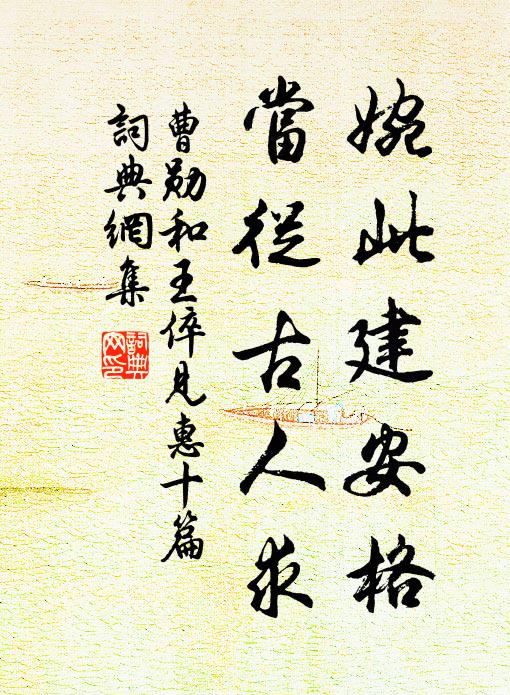 婉此建安格
當從古人求
曹勛和王倅見惠十篇
詞典網集
詞典
网印